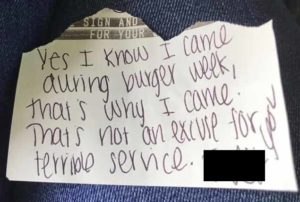 SIGN AND
FOR YOUR
Yes I know I came
during burger week,
that's why I came.
Thats not an excuse for
terrible service.
you